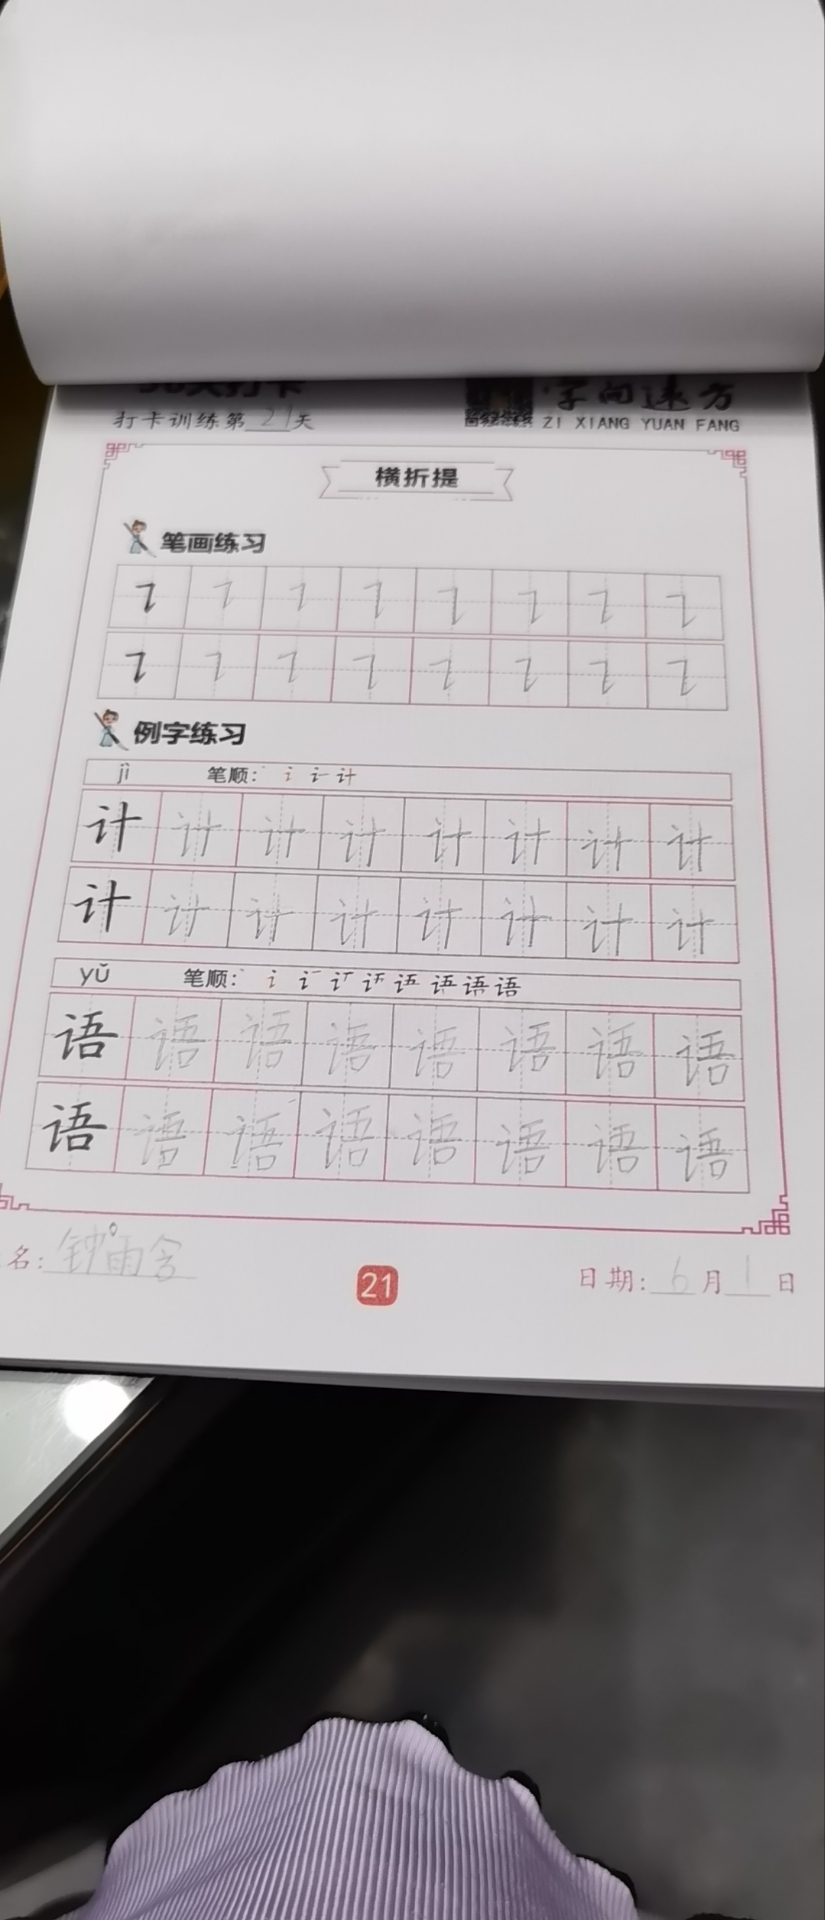 打卡训练第21天
字向速方
ZI XIANG YUAN FANG
横折提
笔画练习
例字练习
jì 笔顺：
计 计 计 计 计 计 计 计
计 计 计 计 计 计 计 计
yǔ 笔顺： 语 语 语
语 语 语 语 语 语 语 语
语 语 语 语 语 语 语 语
名：钟雨含
21
日期：6月1日